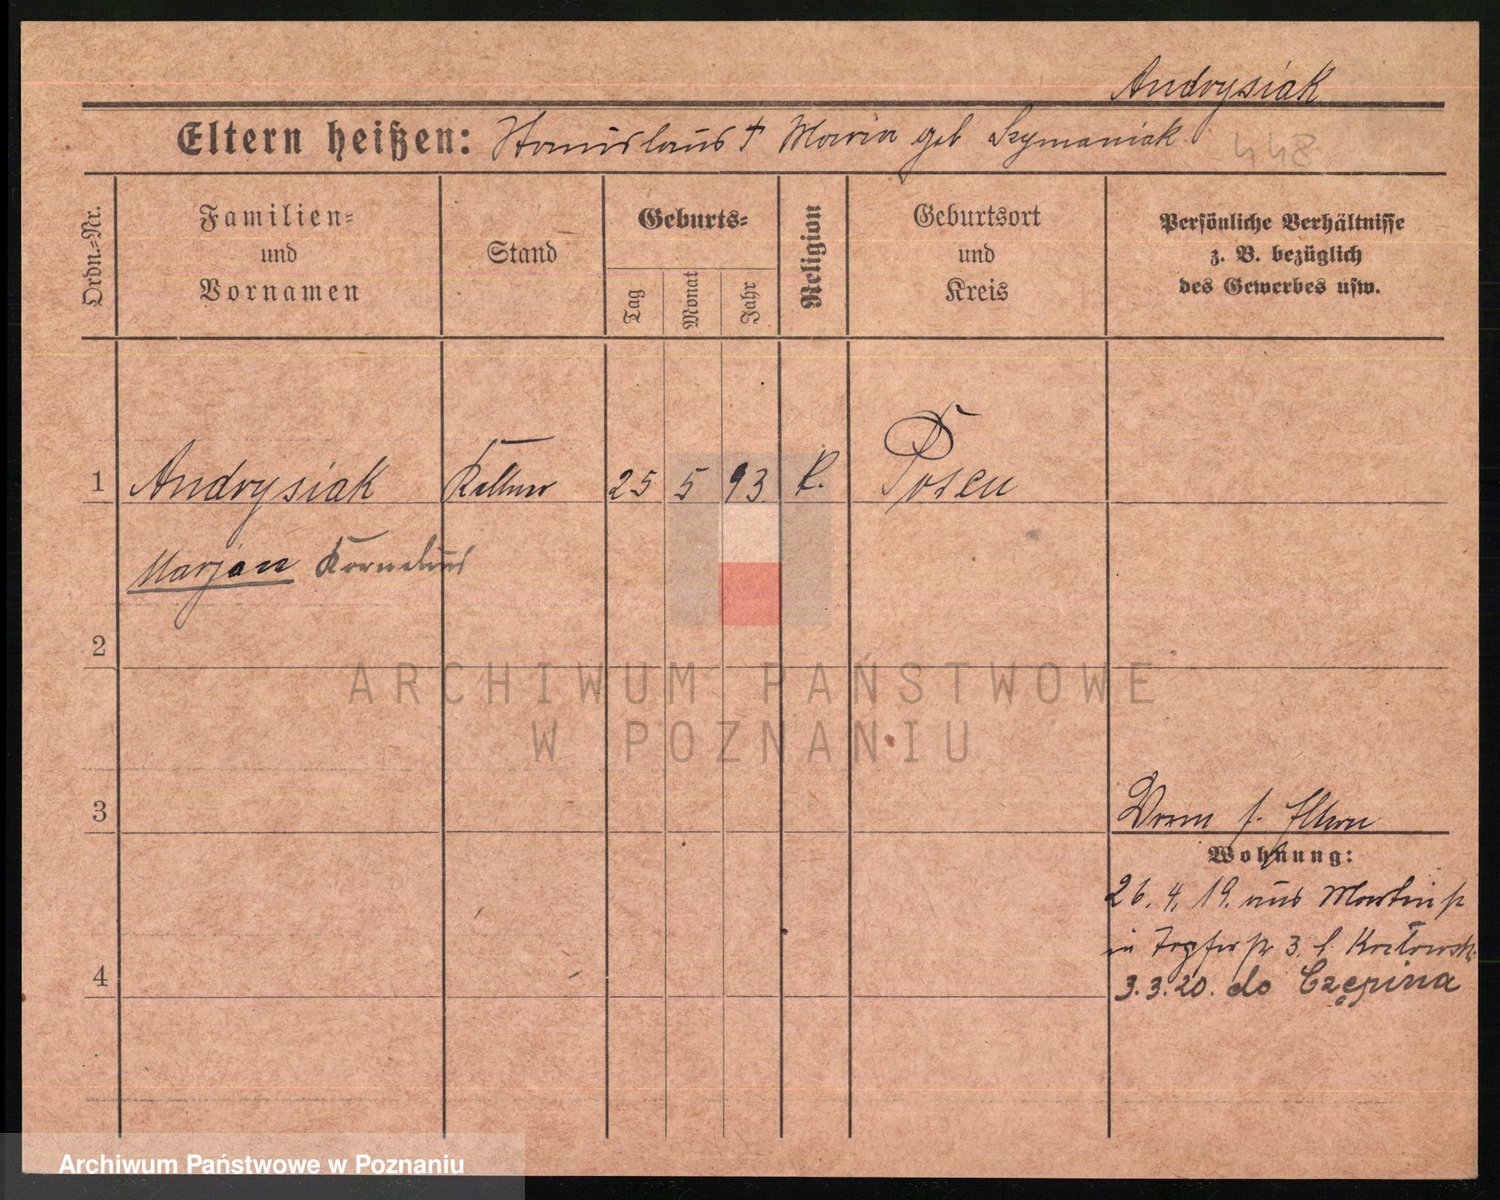 Andrysiak
Eltern heißen: Stanislaus † Maria geb Szymaniak
448
Ordn.-Nr.
Familien-
und
Vornamen
Stand
Geburts-
Tag
Monat
Jahr
Religion
Geburtsort
und
Kreis
Persönliche Verhältnisse
z. B. bezüglich
des Gewerbes usw.
1 Andrysiak Kellner 25 5 93 k. Posen
Marjan Kornelius
2
ARCHIWUM PAŃSTWOWE
W POZNANIU
3
Vorm s. Eltern
Wohnung:
26. 4. 19. aus Martinstr
in Töpferstr 3. b.
4
3.3.20. do Czępina
Archiwum Państwowe w Poznaniu